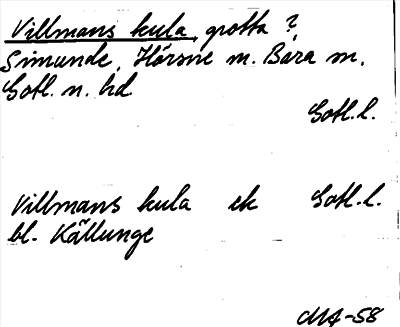 Villmans kula, grotta ?
Simunde, Hörsne m. Bara sn,
Gotl. n. hd
Gotl. l.
Villmans kula ek Gotl. l.
bl. Källunge
MA-58